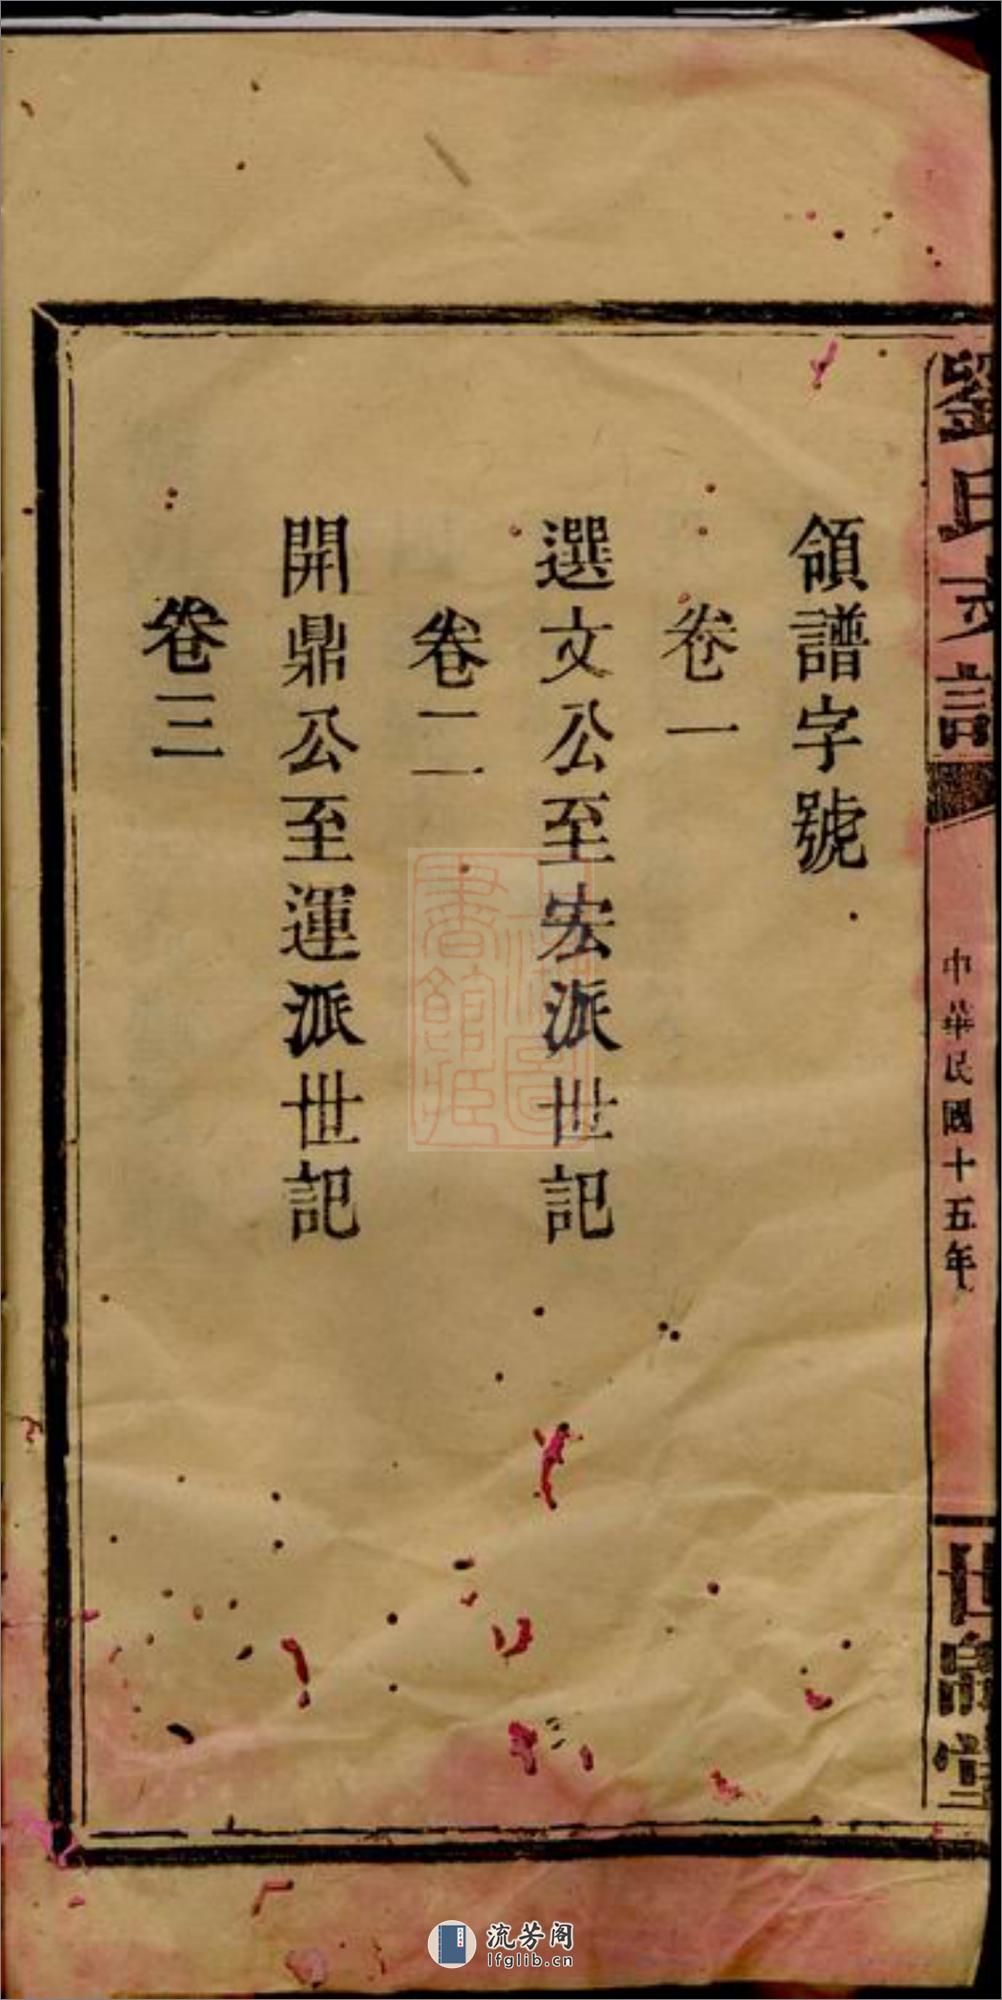 劉氏支譜
中華民國十五年
領譜字號
卷一
選文公至宏派世記
卷二
開鼎公至運派世記
卷三
書館
流芳阁
lfglib.cn